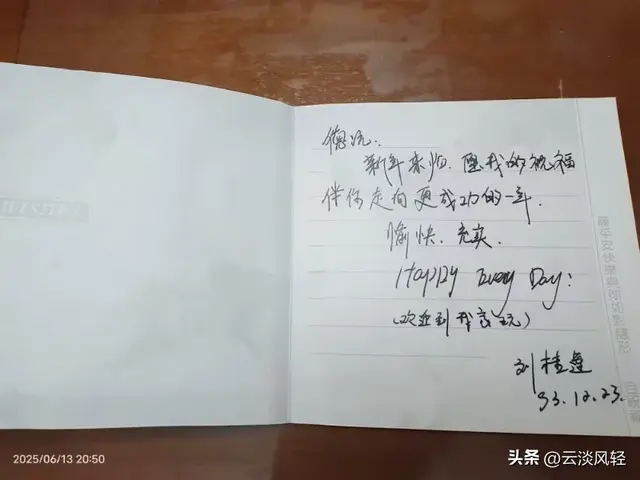 新年来临.愿我的祝福
伴你走向更成功的一年.
愉快.充实.
Happy Every Day!
(欢迎到我家玩)
刘桂莲
93.12.23.
2025/06/13 20:50
头条 @云淡风轻